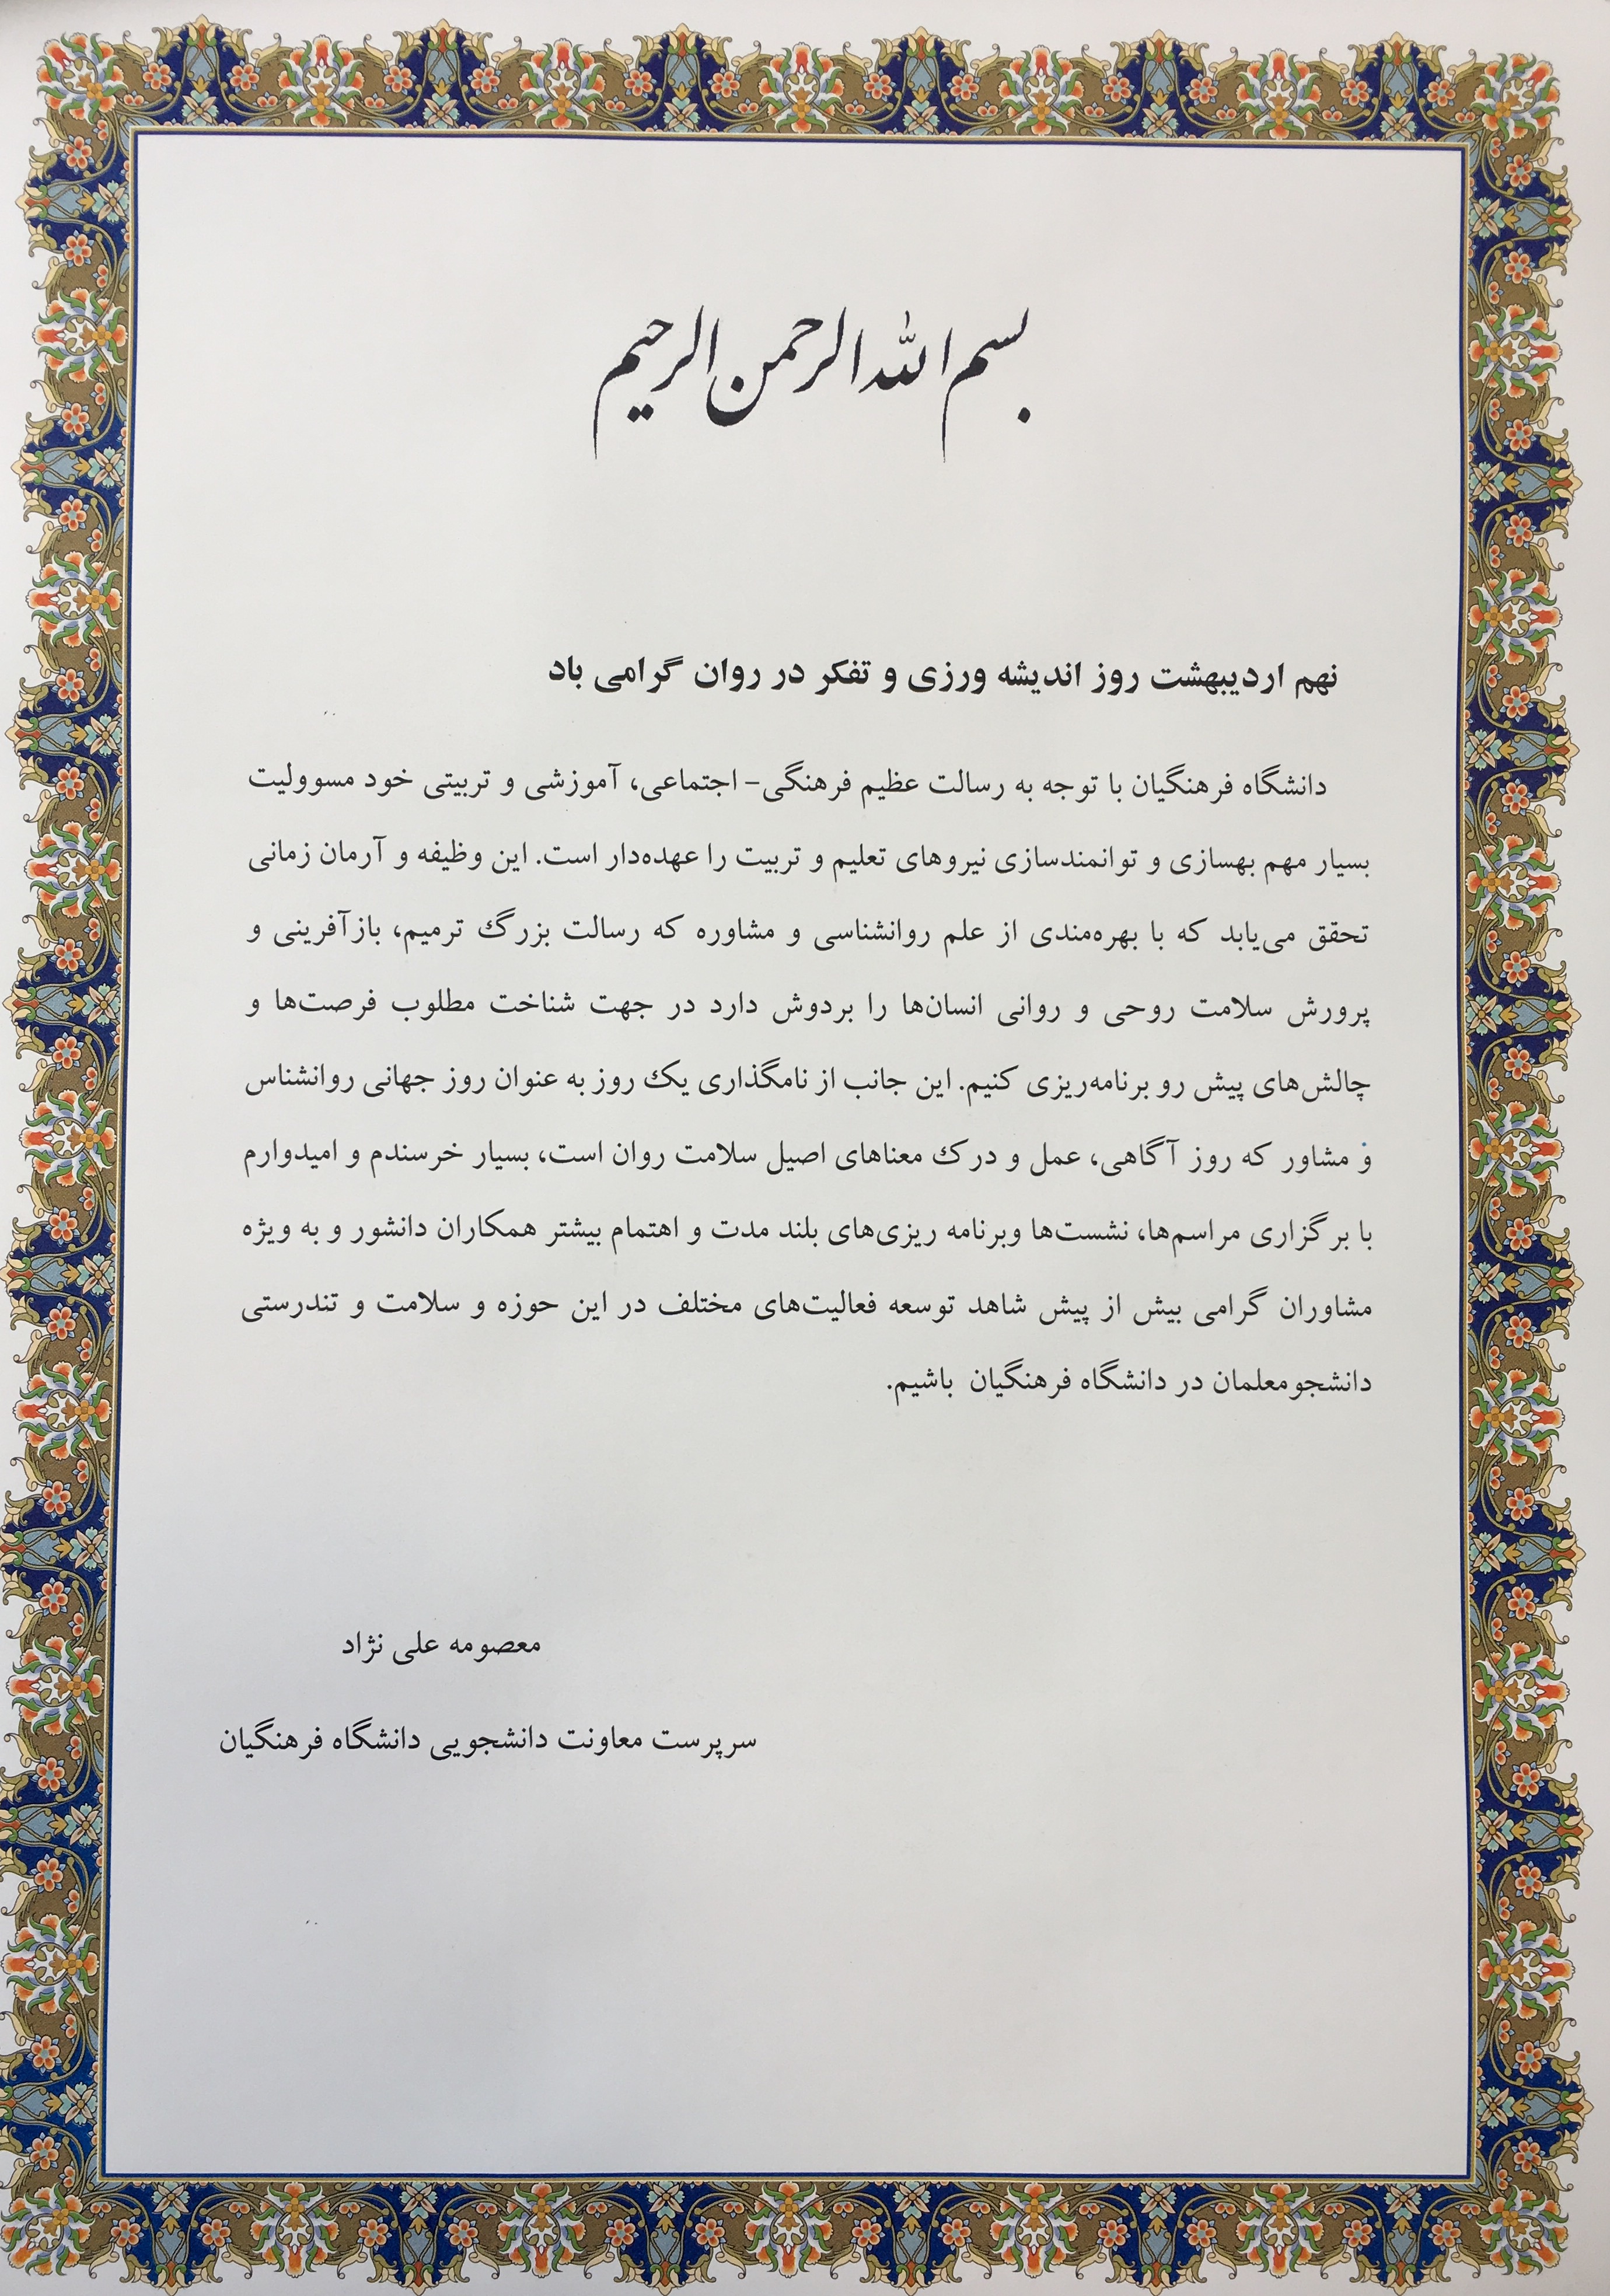 بسم الله الرحمن الرحیم
نهم اردیبهشت روز اندیشه ورزی و تفکر در روان گرامی باد
دانشگاه فرهنگیان با توجه به رسالت عظیم فرهنگی- اجتماعی، آموزشی و تربیتی خود مسوولیت
بسیار مهم بهسازی و توانمندسازی نیروهای تعلیم و تربیت را عهده‌دار است. این وظیفه و آرمان زمانی
تحقق می‌یابد که با بهره‌مندی از علم روانشناسی و مشاوره که رسالت بزرگ ترمیم، بازآفرینی و
پرورش سلامت روحی و روانی انسان‌ها را بردوش دارد در جهت شناخت مطلوب فرصت‌ها و
چالش‌های پیش رو برنامه‌ریزی کنیم. این جانب از نامگذاری یک روز به عنوان روز جهانی روانشناس
و مشاور که روز آگاهی، عمل و درک معناهای اصیل سلامت روان است، بسیار خرسندم و امیدوارم
با برگزاری مراسم‌ها، نشست‌ها وبرنامه ریزی‌های بلند مدت و اهتمام بیشتر همکاران دانشور و به ویژه
مشاوران گرامی بیش از پیش شاهد توسعه فعالیت‌های مختلف در این حوزه و سلامت و تندرستی
دانشجومعلمان در دانشگاه فرهنگیان باشیم.
معصومه علی نژاد
سرپرست معاونت دانشجویی دانشگاه فرهنگیان